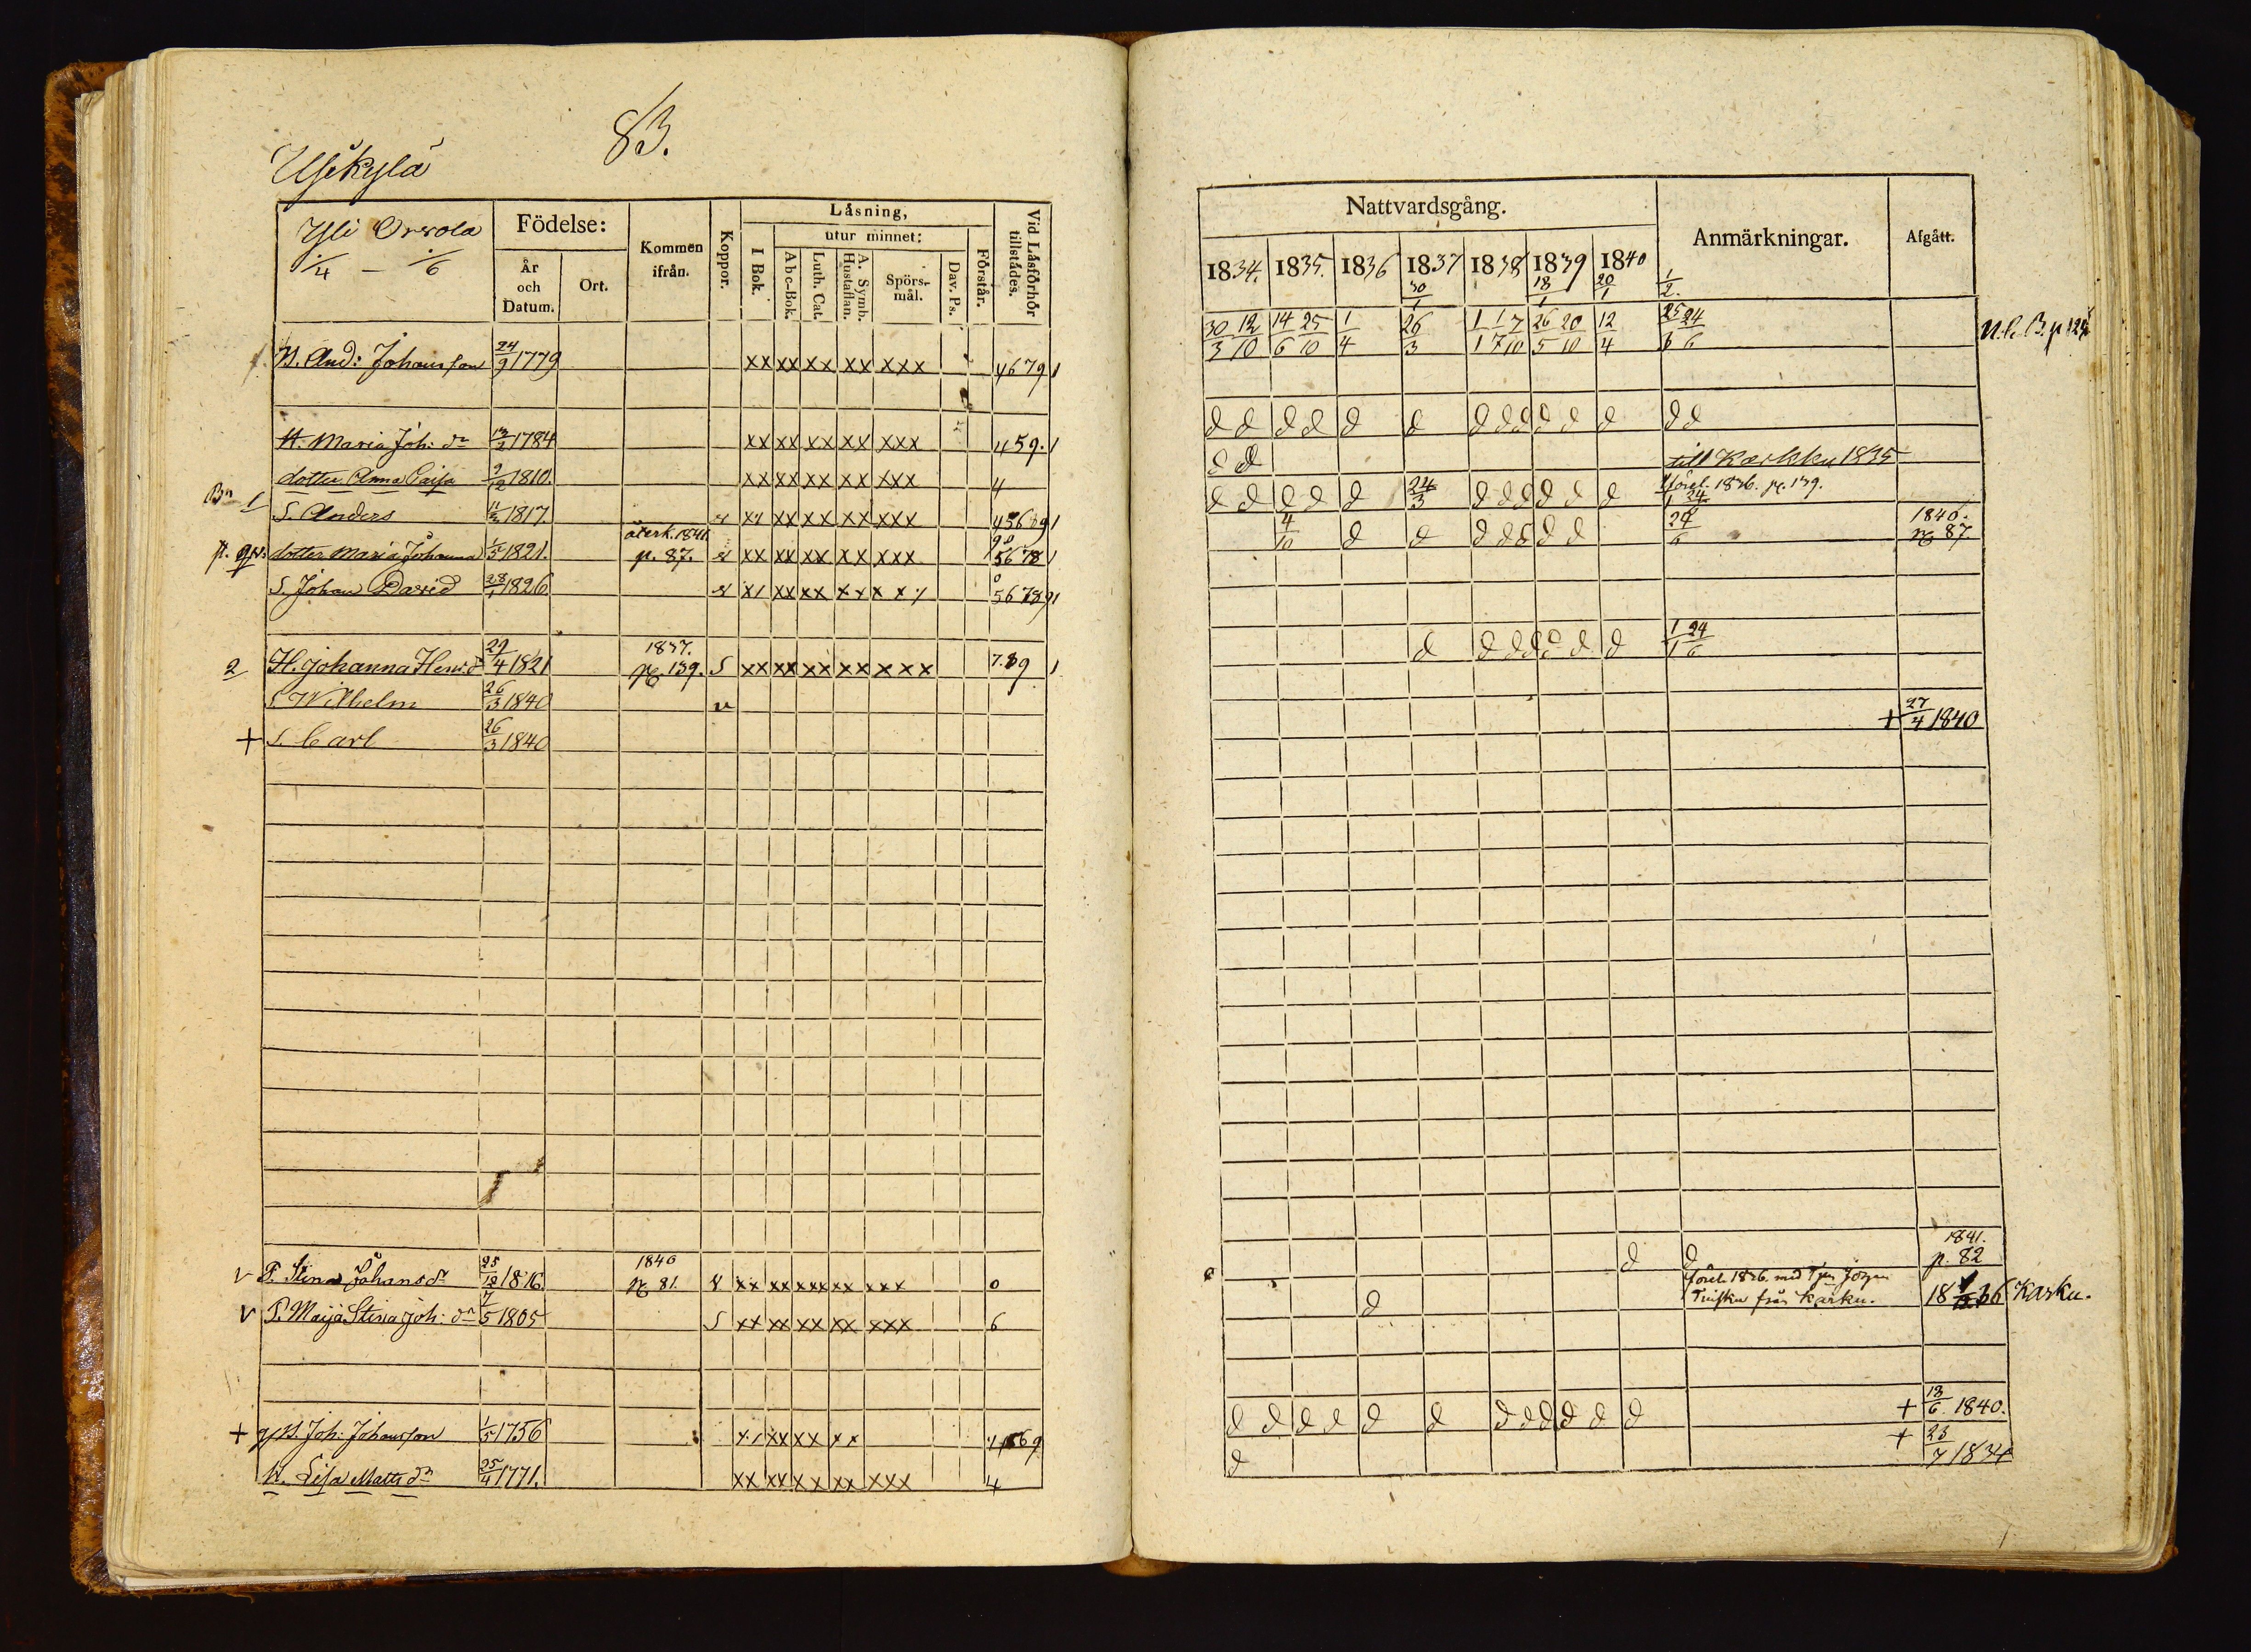 83.
Yli Orvola
1/4 – 1/6
Födelse:
År och Datum.
Ort.
Kommen ifrån.
Koppor.
Låsning,
I Bok.
utur minnet:
Abc-Bok.
Luth. Cat.
A. Symb. Hustaflan.
Spörs-mål.
Dav. Ps.
Förstår.
Vid Låsförhör tillstädes.
And: Johansson 24/9 1779 xx xx xx xx xxx 4679 1
H. Maria Joh: dr 13/2 1784 xx xx xx xx xxx 459. 1
dotter Anna Caisa 9/12 1810. xx xx xx xx xxx 4
S. Anders 1817. xx xx xx xxx
dotter Maria Johanna 1/5 1821. återk. 1841. p. 87. xx xx xx xx xxx 5678 1
S. Johan David 28/1 1826. xx xx 56789 1
2 H. Johanna Henr. d 29/4 1821 1837. pg 139. S xx xx xx xx xxx 7.89 1
S. Wilhelm 26/3 1840 v
+ S. Carl 26/3 1840
v P. Stina Johans dr 25/12 1816. 1840 pg 81. xx xx xx xx xxx 0
v P. Maija Stina Joh: dr 7/5 1805 S xx xx xx xx xxx 6
+ Joh: Johansson 1/5 1756 xx xx xx
H. Lisa Matts dr 25/4 1771. xx xx xx xx xxx 4
Nattvardsgång.
Anmärkningar.
Afgått.
1834. 1835. 1836 1837 1838 1839 1840
30/1 18/1 20/1 1/2
30/3 12/10 14/6 25/10 1/4 26/3 1/1 1/7 7/10 26/5 20/10 12/4 25/6 24/6
d d d d d d d d d d d d d d
d d till Karkku 1835
d d d d d 24/3 d d d d d d 1836. pg. 139.
4/10 d d d d d d d 24/6 1840. pg 87.
d d d d d d d 1/1 24/6
+ 27/4 1840
d d 1841. p. 82
d 1836. med från Karku. 18 36 Karku.
d d d d d d d d d d d d + 13/6 1840.
d + 23/7 1834